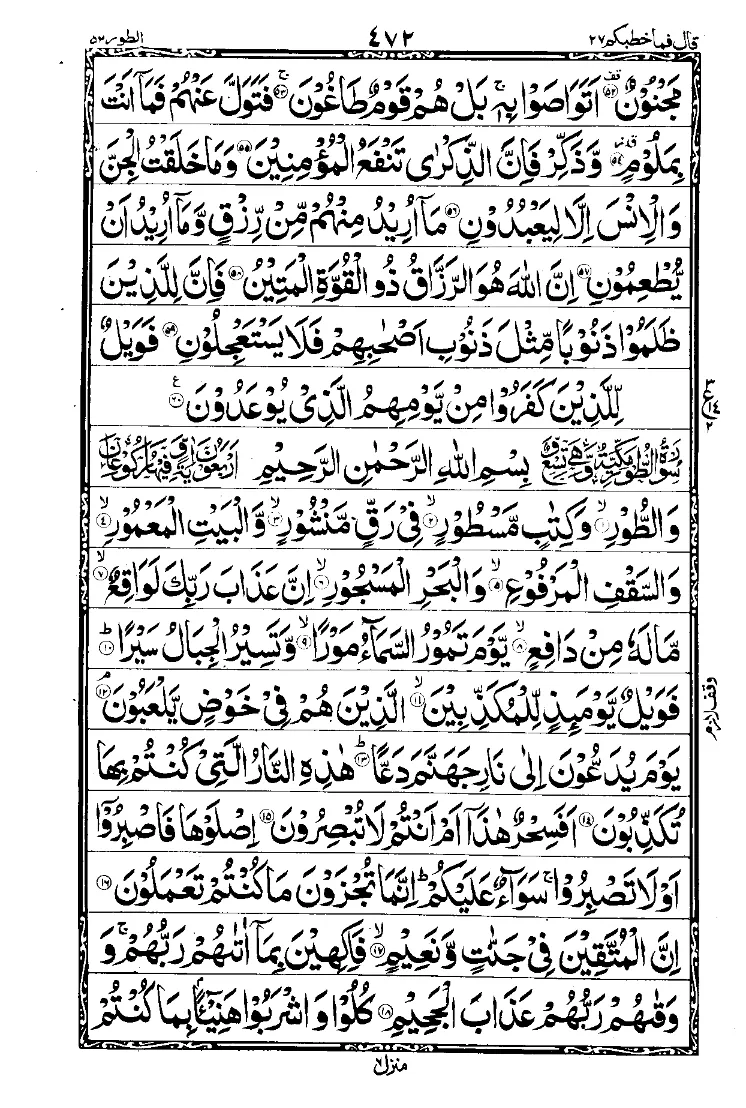 قال فما خطبكم ٢٧ ٤٧٢ الطور ٥٢
مَجْنُوْنٌ ۟ۙ٥٢ اَتَوَاصَوْا بِهٖ ۚ بَلْ هُمْ قَوْمٌ طَاغُوْنَ ۚ٥٣ فَتَوَلَّ عَنْهُمْ فَمَاۤ اَنْتَ
بِمَلُوْمٍ ٥٤ وَّذَكِّرْ فَاِنَّ الذِّكْرٰى تَنْفَعُ الْمُؤْمِنِيْنَ ٥٥ وَمَا خَلَقْتُ الْجِنَّ
وَالْاِنْسَ اِلَّا لِيَعْبُدُوْنِ ٥٦ مَاۤ اُرِيْدُ مِنْهُمْ مِّنْ رِّزْقٍ وَّمَاۤ اُرِيْدُ اَنْ
يُّطْعِمُوْنِ ٥٧ اِنَّ اللّٰهَ هُوَ الرَّزَّاقُ ذُو الْقُوَّةِ الْمَتِيْنُ ٥٨ فَاِنَّ لِلَّذِيْنَ
ظَلَمُوْا ذَنُوْبًا مِّثْلَ ذَنُوْبِ اَصْحٰبِهِمْ فَلَا يَسْتَعْجِلُوْنِ ٥٩ فَوَيْلٌ
لِّلَّذِيْنَ كَفَرُوْا مِنْ يَّوْمِهِمُ الَّذِيْ يُوْعَدُوْنَ ٦٠ ع
سورة الطور مكية وهي تسع و بِسْمِ اللهِ الرَّحْمٰنِ الرَّحِيْمِ اربعون اية وفيها ركوعان
وَالطُّوْرِ ۙ١ وَكِتٰبٍ مَّسْطُوْرٍ ۙ٢ فِيْ رَقٍّ مَّنْشُوْرٍ ۙ٣ وَّالْبَيْتِ الْمَعْمُوْرِ ۙ٤
وَالسَّقْفِ الْمَرْفُوْعِ ۙ٥ وَالْبَحْرِ الْمَسْجُوْرِ ۙ٦ اِنَّ عَذَابَ رَبِّكَ لَوَاقِعٌ ۙ٧
مَّا لَهٗ مِنْ دَافِعٍ ۙ٨ يَّوْمَ تَمُوْرُ السَّمَآءُ مَوْرًا ۙ٩ وَّتَسِيْرُ الْجِبَالُ سَيْرًا ؕ١٠
فَوَيْلٌ يَّوْمَئِذٍ لِّلْمُكَذِّبِيْنَ ۙ١١ الَّذِيْنَ هُمْ فِيْ خَوْضٍ يَّلْعَبُوْنَ ۘ١٢ وقف لازم
يَوْمَ يُدَعُّوْنَ اِلٰى نَارِ جَهَنَّمَ دَعًّا ؕ١٣ هٰذِهِ النَّارُ الَّتِيْ كُنْتُمْ بِهَا
تُكَذِّبُوْنَ ١٤ اَفَسِحْرٌ هٰذَاۤ اَمْ اَنْتُمْ لَا تُبْصِرُوْنَ ۚ١٥ اِصْلَوْهَا فَاصْبِرُوْۤا
اَوْ لَا تَصْبِرُوْا ۚ سَوَآءٌ عَلَيْكُمْ ؕ اِنَّمَا تُجْزَوْنَ مَا كُنْتُمْ تَعْمَلُوْنَ ١٦
اِنَّ الْمُتَّقِيْنَ فِيْ جَنّٰتٍ وَّنَعِيْمٍ ۙ١٧ فَاكِهِيْنَ بِمَاۤ اٰتٰىهُمْ رَبُّهُمْ ۚ وَ
وَقٰىهُمْ رَبُّهُمْ عَذَابَ الْجَحِيْمِ ١٨ كُلُوْا وَاشْرَبُوْا هَنِيْٓئًۢا بِمَا كُنْتُمْ
منزل ٧